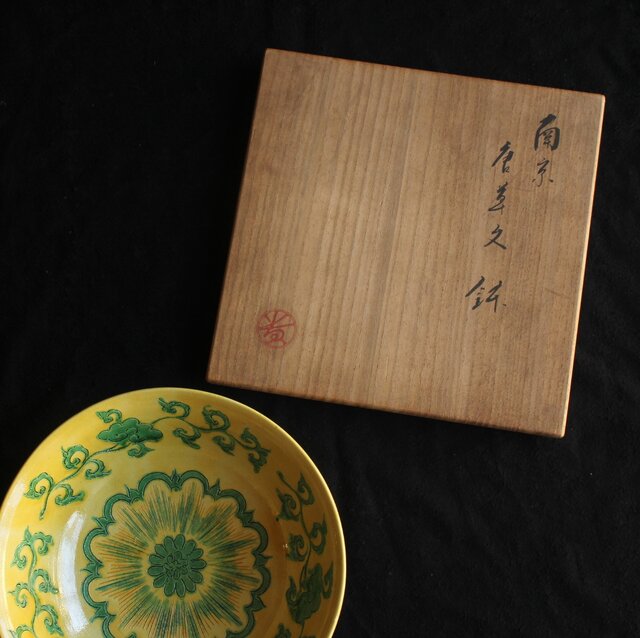 南京
唐草文
鉢